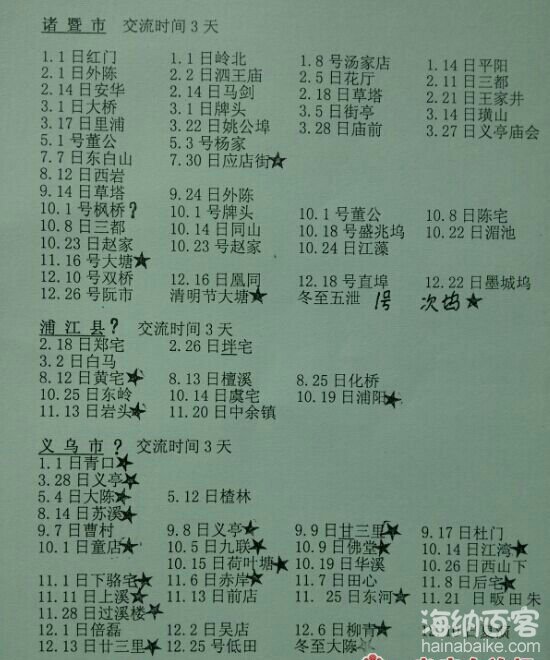 诸暨市 交流时间3天
1.1日红门 1.1日岭北 1.8号汤家店 1.14日平阳
2.1日外陈 2.2日泗王庙 2.5日花厅 2.11日三都
2.14日安华 2.14日马剑 2.18日草塔 2.21日王家井
3.1日大桥 3.1日牌头 3.5日街亭 3.14日璜山
3.17日里浦 3.22日姚公埠 3.28日庙前 3.27日义亭庙会
5.1号董公 5.3号杨家
7.7日东白山 7.30日应店街★
8.12日西岩
9.14日草塔 9.24日外陈
10.1号枫桥? 10.1号牌头 10.1号董公 10.8日陈宅
10.8日三都 10.14日同山 10.18号盛兆坞 10.22日湄池
10.23日赵家 10.23号赵家 10.24日江藻
11.16号大塘★
12.10号双桥 12.16日凰同 12.18号直埠 12.22日墨城坞
12.26号阮市 清明节大塘★ 冬至五泄 1号 次坞★
浦江县? 交流时间3天
2.18日郑宅 2.26日垟宅
3.2日白马
8.12日黄宅★ 8.13日檀溪 8.25日化桥
10.25日东岭 10.14日虞宅 10.19日浦阳★
11.13日岩头★ 11.20日中余镇
义乌市? 交流时间3天
1.1日青口★
3.28日义亭★
5.4日大陈★ 5.12日楂林
8.14日苏溪★
9.7日曹村 9.8日义亭★ 9.9日甘三里★ 9.17日杜门
10.1日童店★ 10.5日九联★ 10.9日佛堂★ 10.14日江湾★
10.15日荷叶塘★ 10.19日华溪 10.26日西山下
11.1日下骆宅★ 11.6日赤岸★ 11.7日田心 11.8日后宅★
11.11日上溪★ 11.13日前店 11.25日东河★ 11.21日畈田朱
11.28日过溪楼★
12.1日倍磊 12.2日吴店 12.6日柳青★
12.13日廿三里★ 12.25号低田 冬至大陈★
海纳百客
hainabaike.com